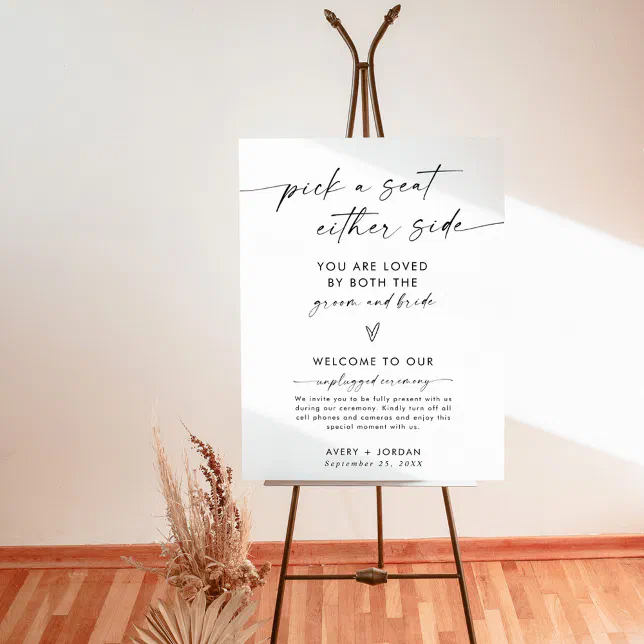 pick a seat
either side
YOU ARE LOVED
BY BOTH THE
groom and bride
WELCOME TO OUR
unplugged ceremony
We invite you to be fully present with us
during our ceremony. Kindly turn off all
cell phones and cameras and enjoy this
special moment with us.
AVERY + JORDAN
September 25, 20XX